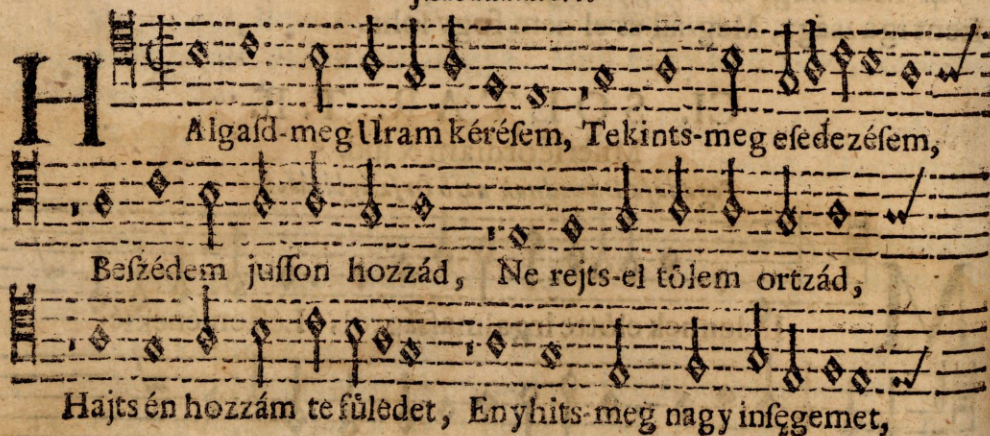 HAlgaſd-meg Uram kéréſem, Tekints-meg eſedezéſem,
Beſzédem juſſon hozzád, Ne rejts-el tőlem ortzád,
Hajts én hozzám te fűledet, Enyhits-meg nagy inſęgemet,